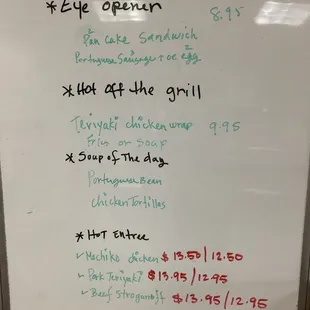 *Eye opener 8.95
Pancake Sandwich
Portuguese Sausage + oe egg
*Hot off the grill
Teriyaki chicken wrap 9.95
Fries or Soup
*Soup of The day
Portuguese Bean
chicken Tortillas
*HOT Entree
✓Mochiko chicken $13.50/12.50
✓Pork Teriyaki $13.95/12.95
✓Beef Stroganoff $13.95/12.95